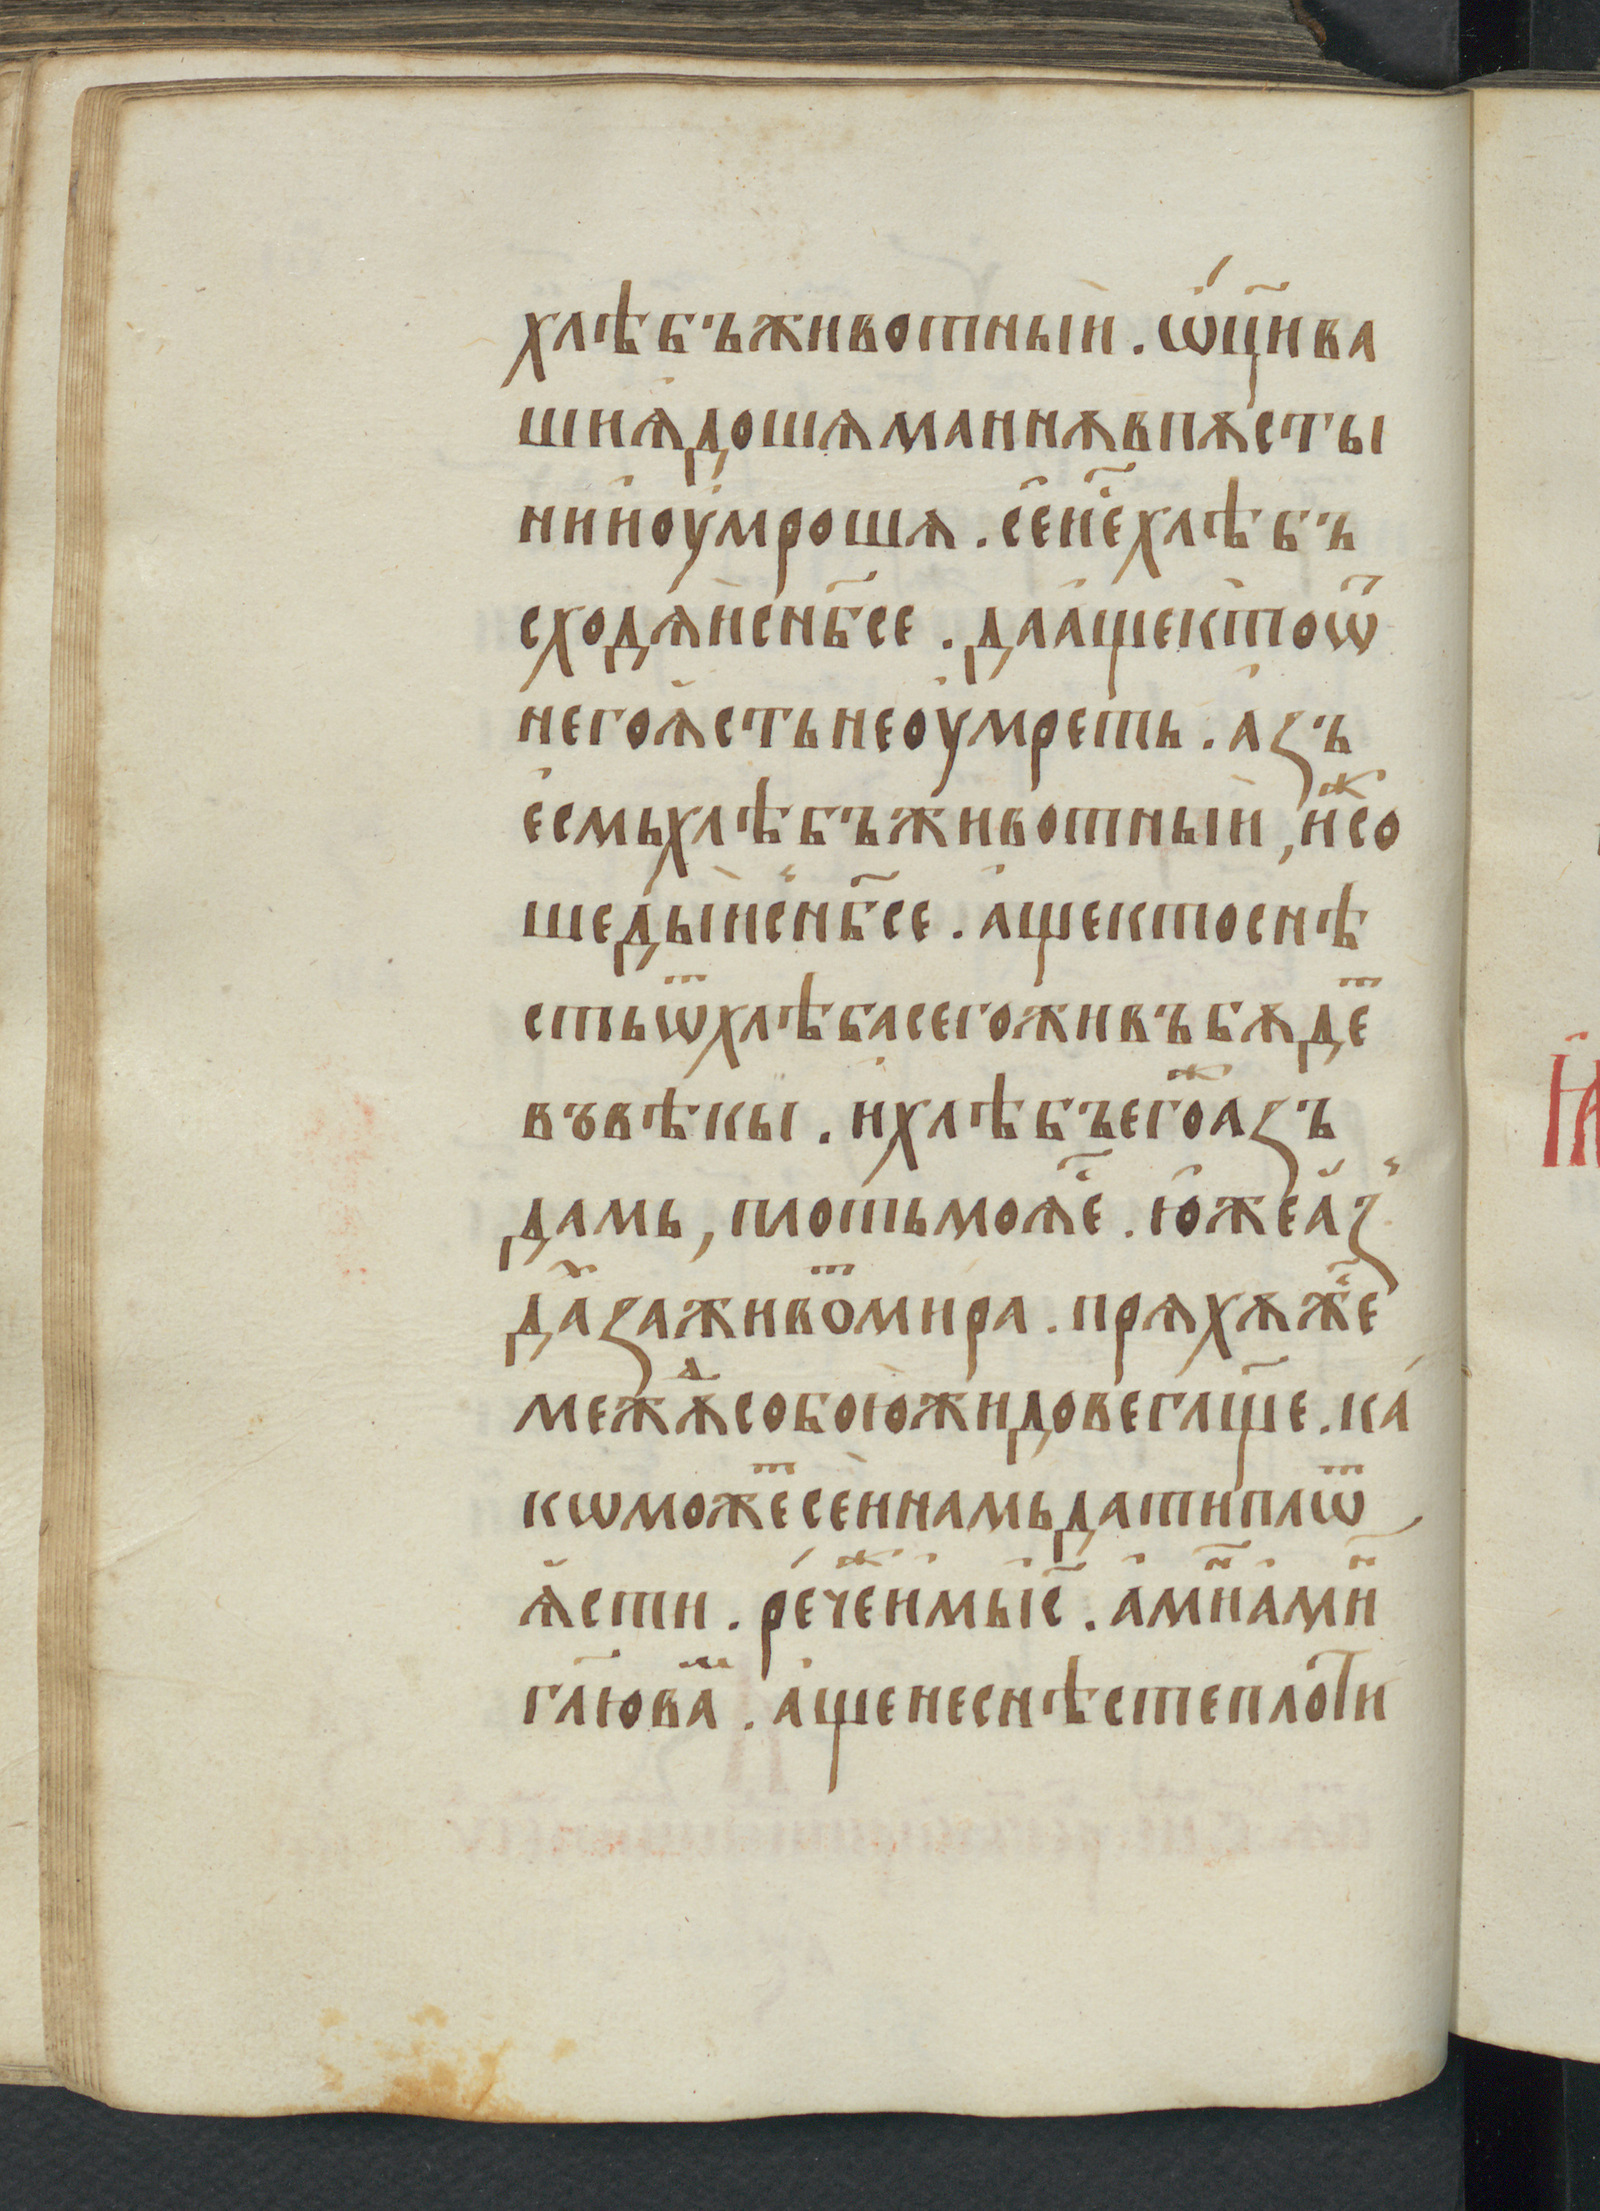 хлѣбъживотныи. ѡ҃цива
шиѧдошѧманнѫвпѫсты
нииоумрошѧ. сеие҃хлѣбъ
сходѧисиб҃се. даащектоѿ
негоѧстьнеоумреть. аꙁъ
есмьхлѣбъживотныи, иⷤсо
шедыисⸯнб҃се. ащектоснѣ
стьѿхлѣбасегоживъбѫдеⷮ
въвѣкы. ихлѣбъегоⷤаꙁъ
дамь, плотьмоѧе҃. юже аꙁⸯ
даⷨꙁаживоⷮмира. прѧхѫже҃
межѫⷣсобоюжидовегл҃ще. ка
кѡможеⷮсеинамьдатиплѿ
ѧсти. речеⷤимьіс҃. амиⷩамиⷩ
гл҃юваⷨ. ащенеснѣстеплоти